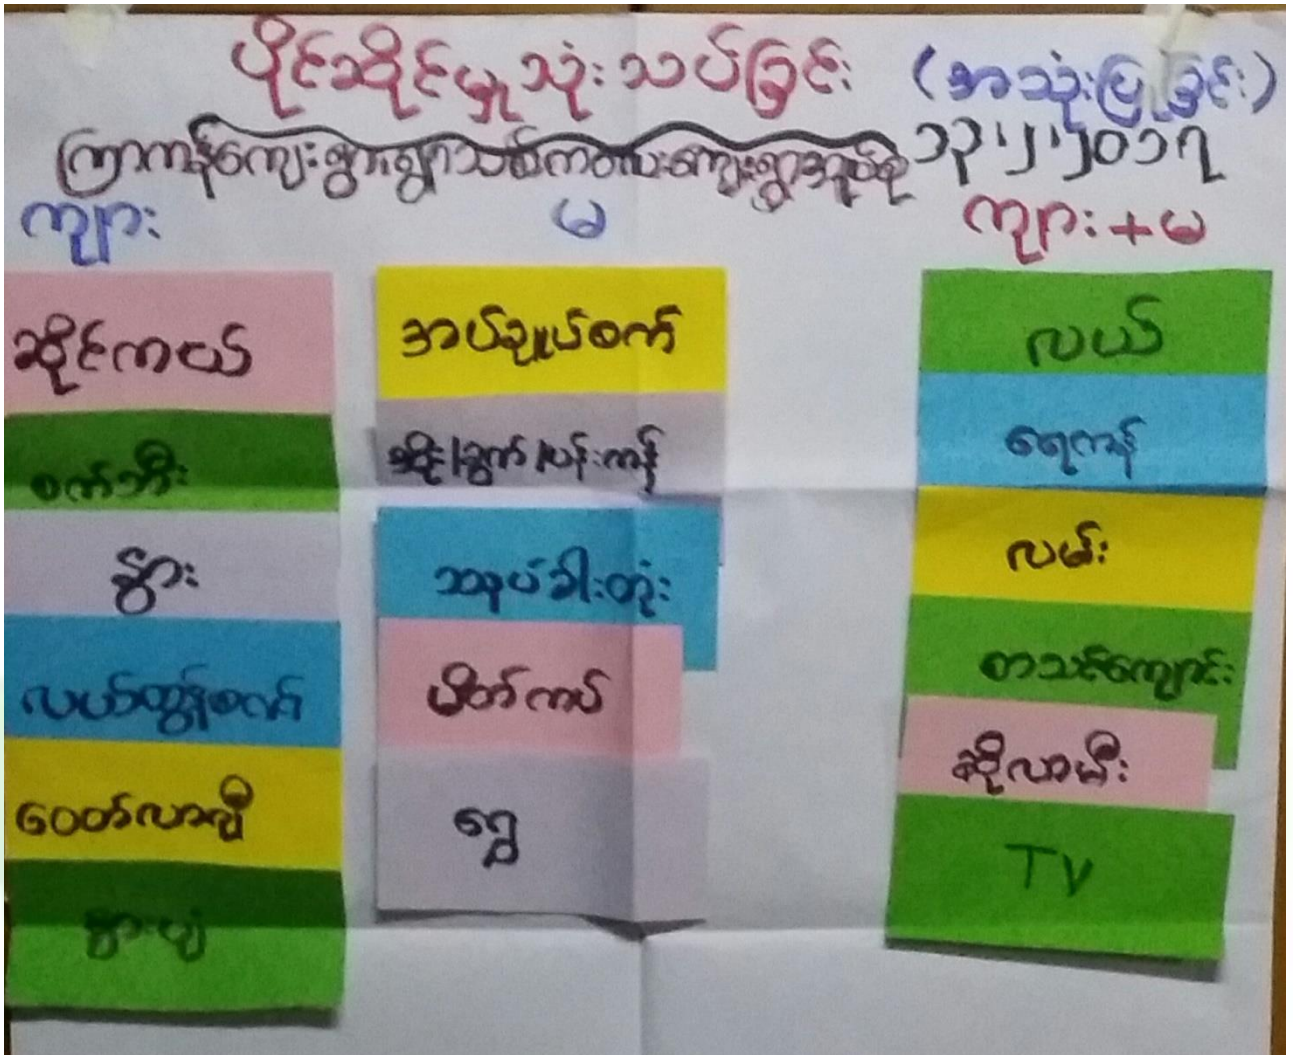 ပိုင်ဆိုင်မှုသုံးသပ်ခြင်း (အသုံးပြုခြင်း)
ကြာကန်ကျေးရွာ၊ရွာသစ်ကလေးကျေးရွာအုပ်စု ၁၃၊၂၊၂၀၁၇
ကျား မ ကျား+မ
ဆိုင်ကယ်
စက်ဘီး
နွား
လယ်ထွန်စက်
ဝေတ်လာလှီ
အပ်ချုပ်စက်
အိုး၊ခွက်၊ပန်းကန်
သနပ်ခါးတုံး
မိတ်ကပ်
ရွှေ
လယ်
ရေကန်
လမ်း
စာသင်ကျောင်း
ဆိုလာမီး
TV